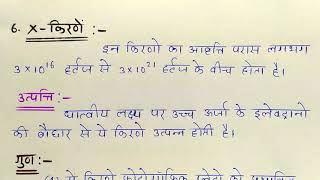 6. X-किरणें :-
इन किरणों का आवृत्ति परास लगभग
3×10¹⁶ हर्ट्ज से 3×10²¹ हर्ट्ज के बीच होता है।
उत्पत्ति :-
धात्वीय लक्ष्य पर उच्च ऊर्जा के इलेक्ट्रानो
की बौछार से ये किरणें उत्पन्न होती है।
गुण :-
(1) ये किरणें फोटोग्राफिक प्लेटो को